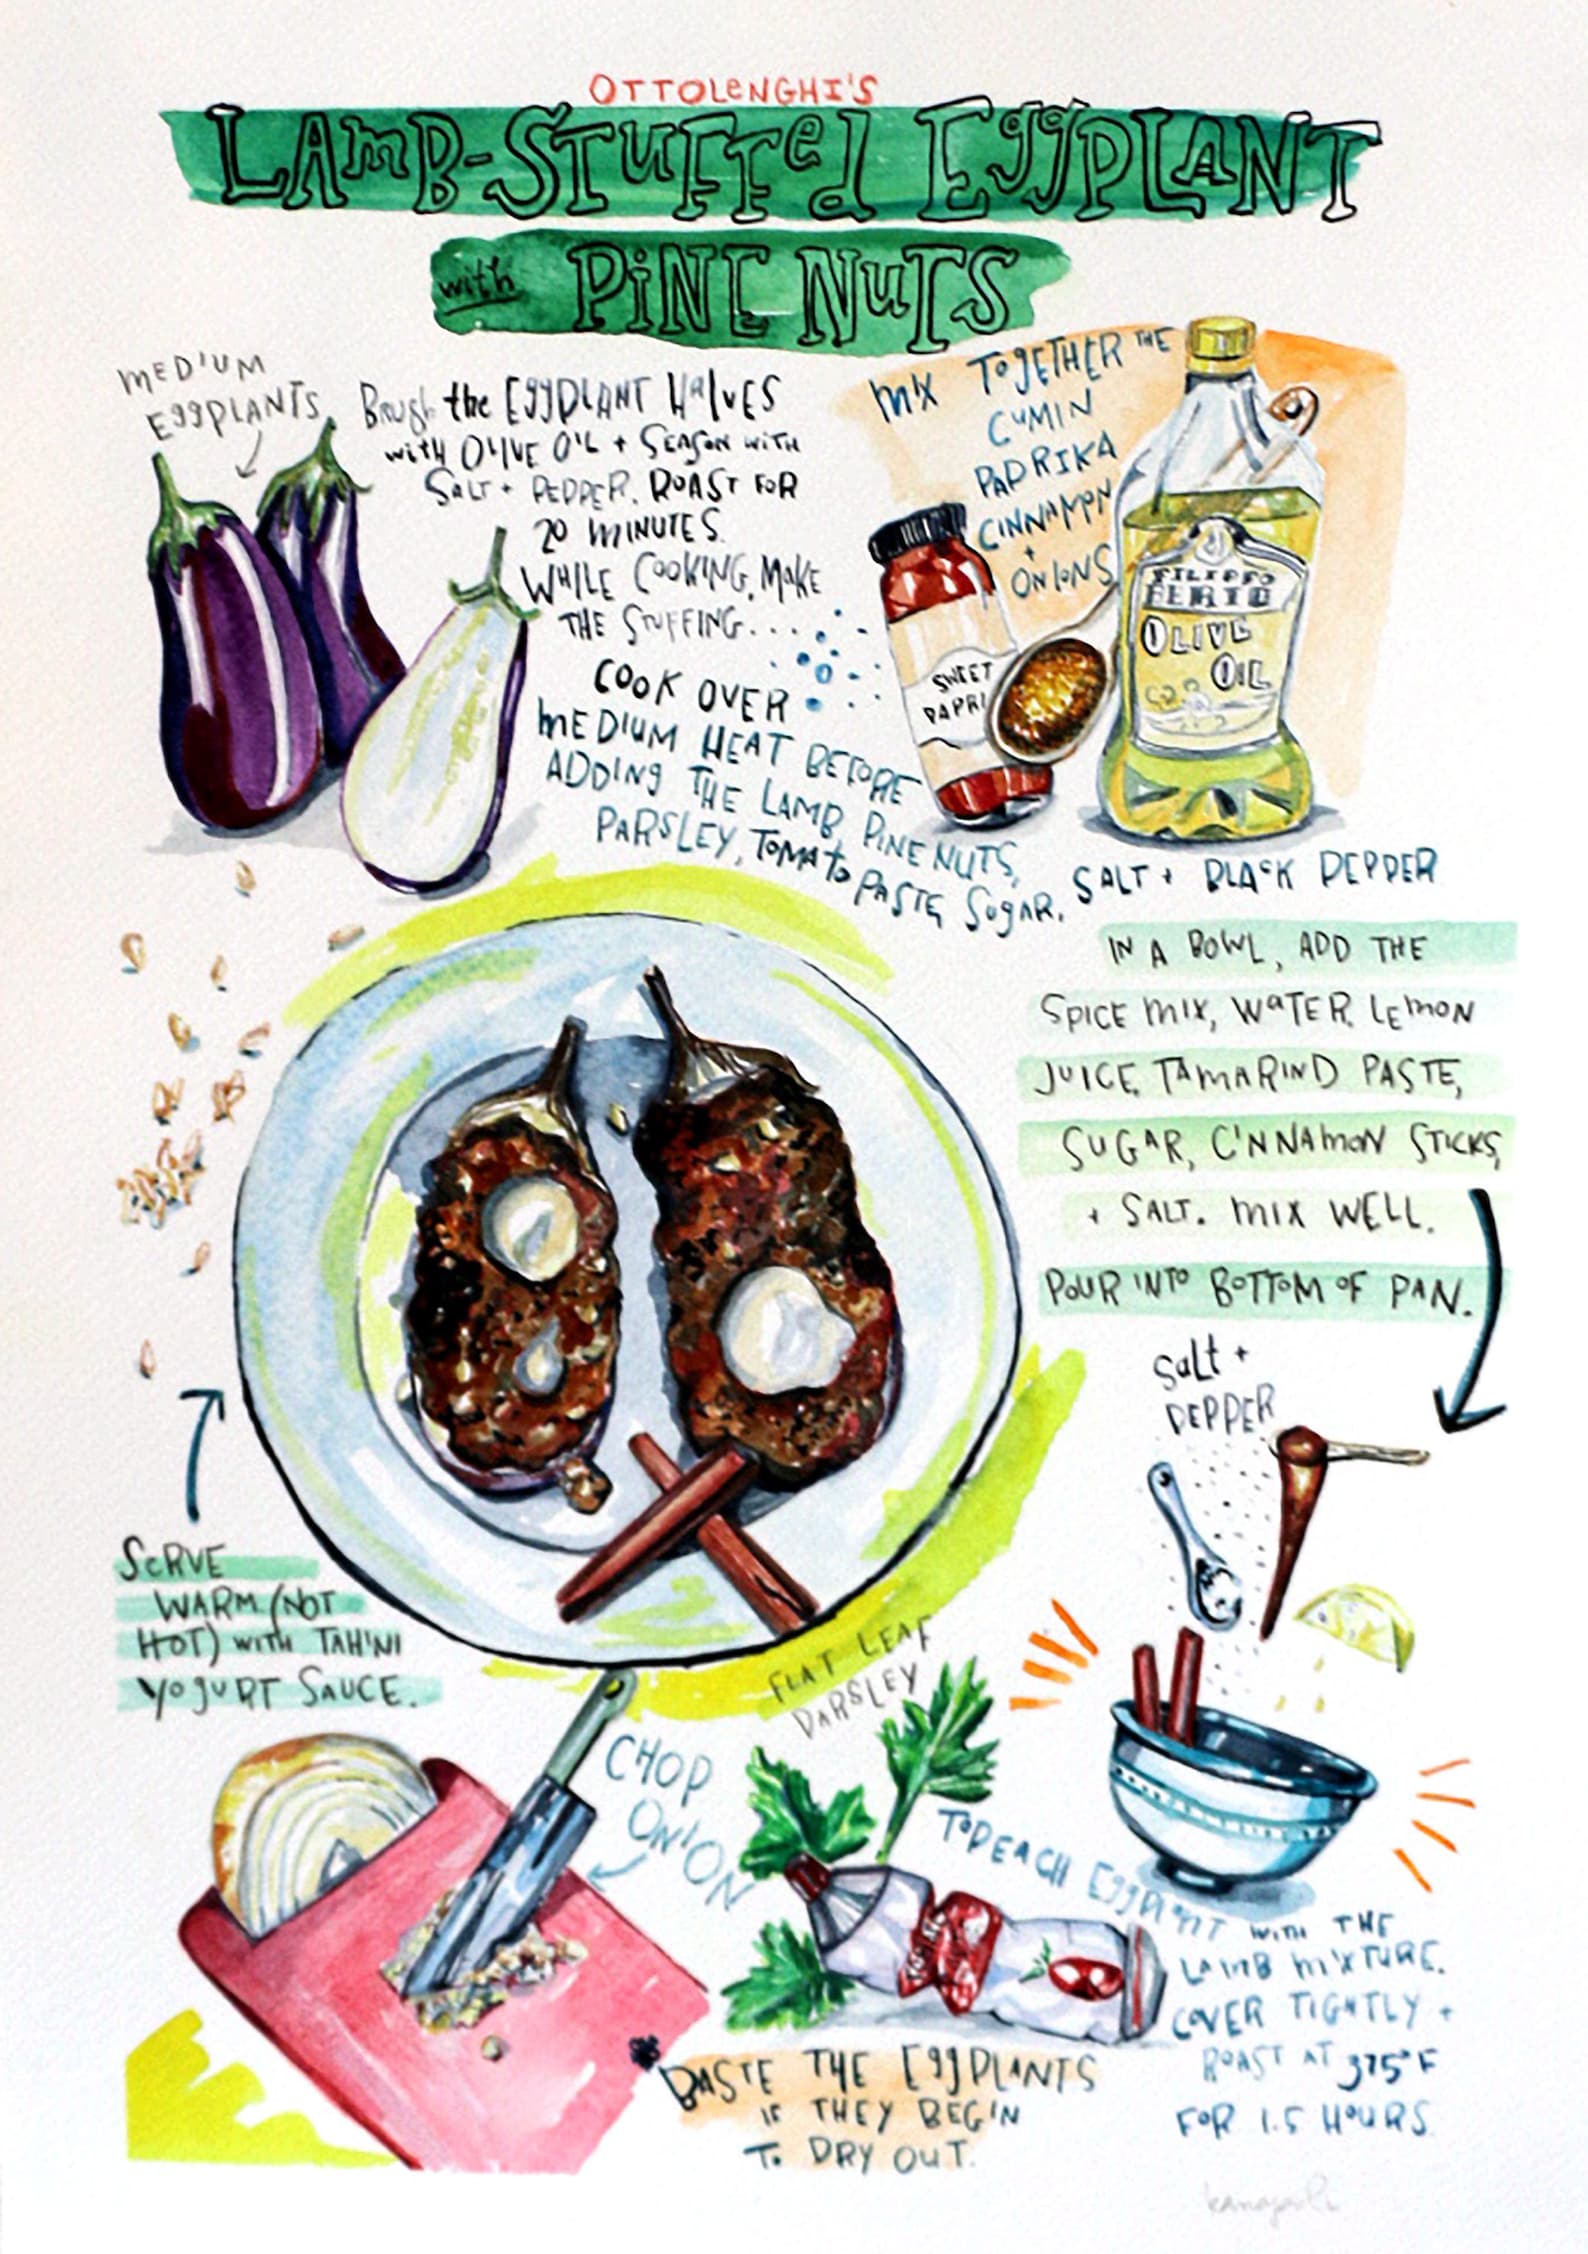 OTTOLENGHI'S
LAMB-STUFFED EGGPLANT
with PINE NUTS
MEDIUM
EGGPLANTS
Brush the EGGPLANT HALVES
with OLIVE OIL + SEASON WITH
SALT + PEPPER. ROAST FOR
20 MINUTES.
WHILE COOKING, MAKE
THE STUFFING...
MIX TOGETHER THE
CUMIN
PAPRIKA
CINNAMON
+
ONIONS
SWEET
PAPRI
FILIPPO
BERIO
OLIVE
OIL
COOK OVER
MEDIUM HEAT BEFORE
ADDING THE LAMB, PINE NUTS,
PARSLEY, TOMATO PASTE, SUGAR, SALT + BLACK PEPPER
IN A BOWL, ADD THE
SPICE MIX, WATER, LEMON
JUICE, TAMARIND PASTE,
SUGAR, CINNAMON STICKS,
+ SALT. MIX WELL.
POUR INTO BOTTOM OF PAN.
SALT +
PEPPER
SERVE
WARM (NOT
HOT) WITH TAHINI
YOGURT SAUCE.
FLAT LEAF
PARSLEY
CHOP
ONION
TOP EACH EGGPLANT WITH THE
LAMB MIXTURE.
COVER TIGHTLY +
ROAST AT 375°F
FOR 1.5 HOURS.
BASTE THE EGGPLANTS
IF THEY BEGIN
TO DRY OUT.